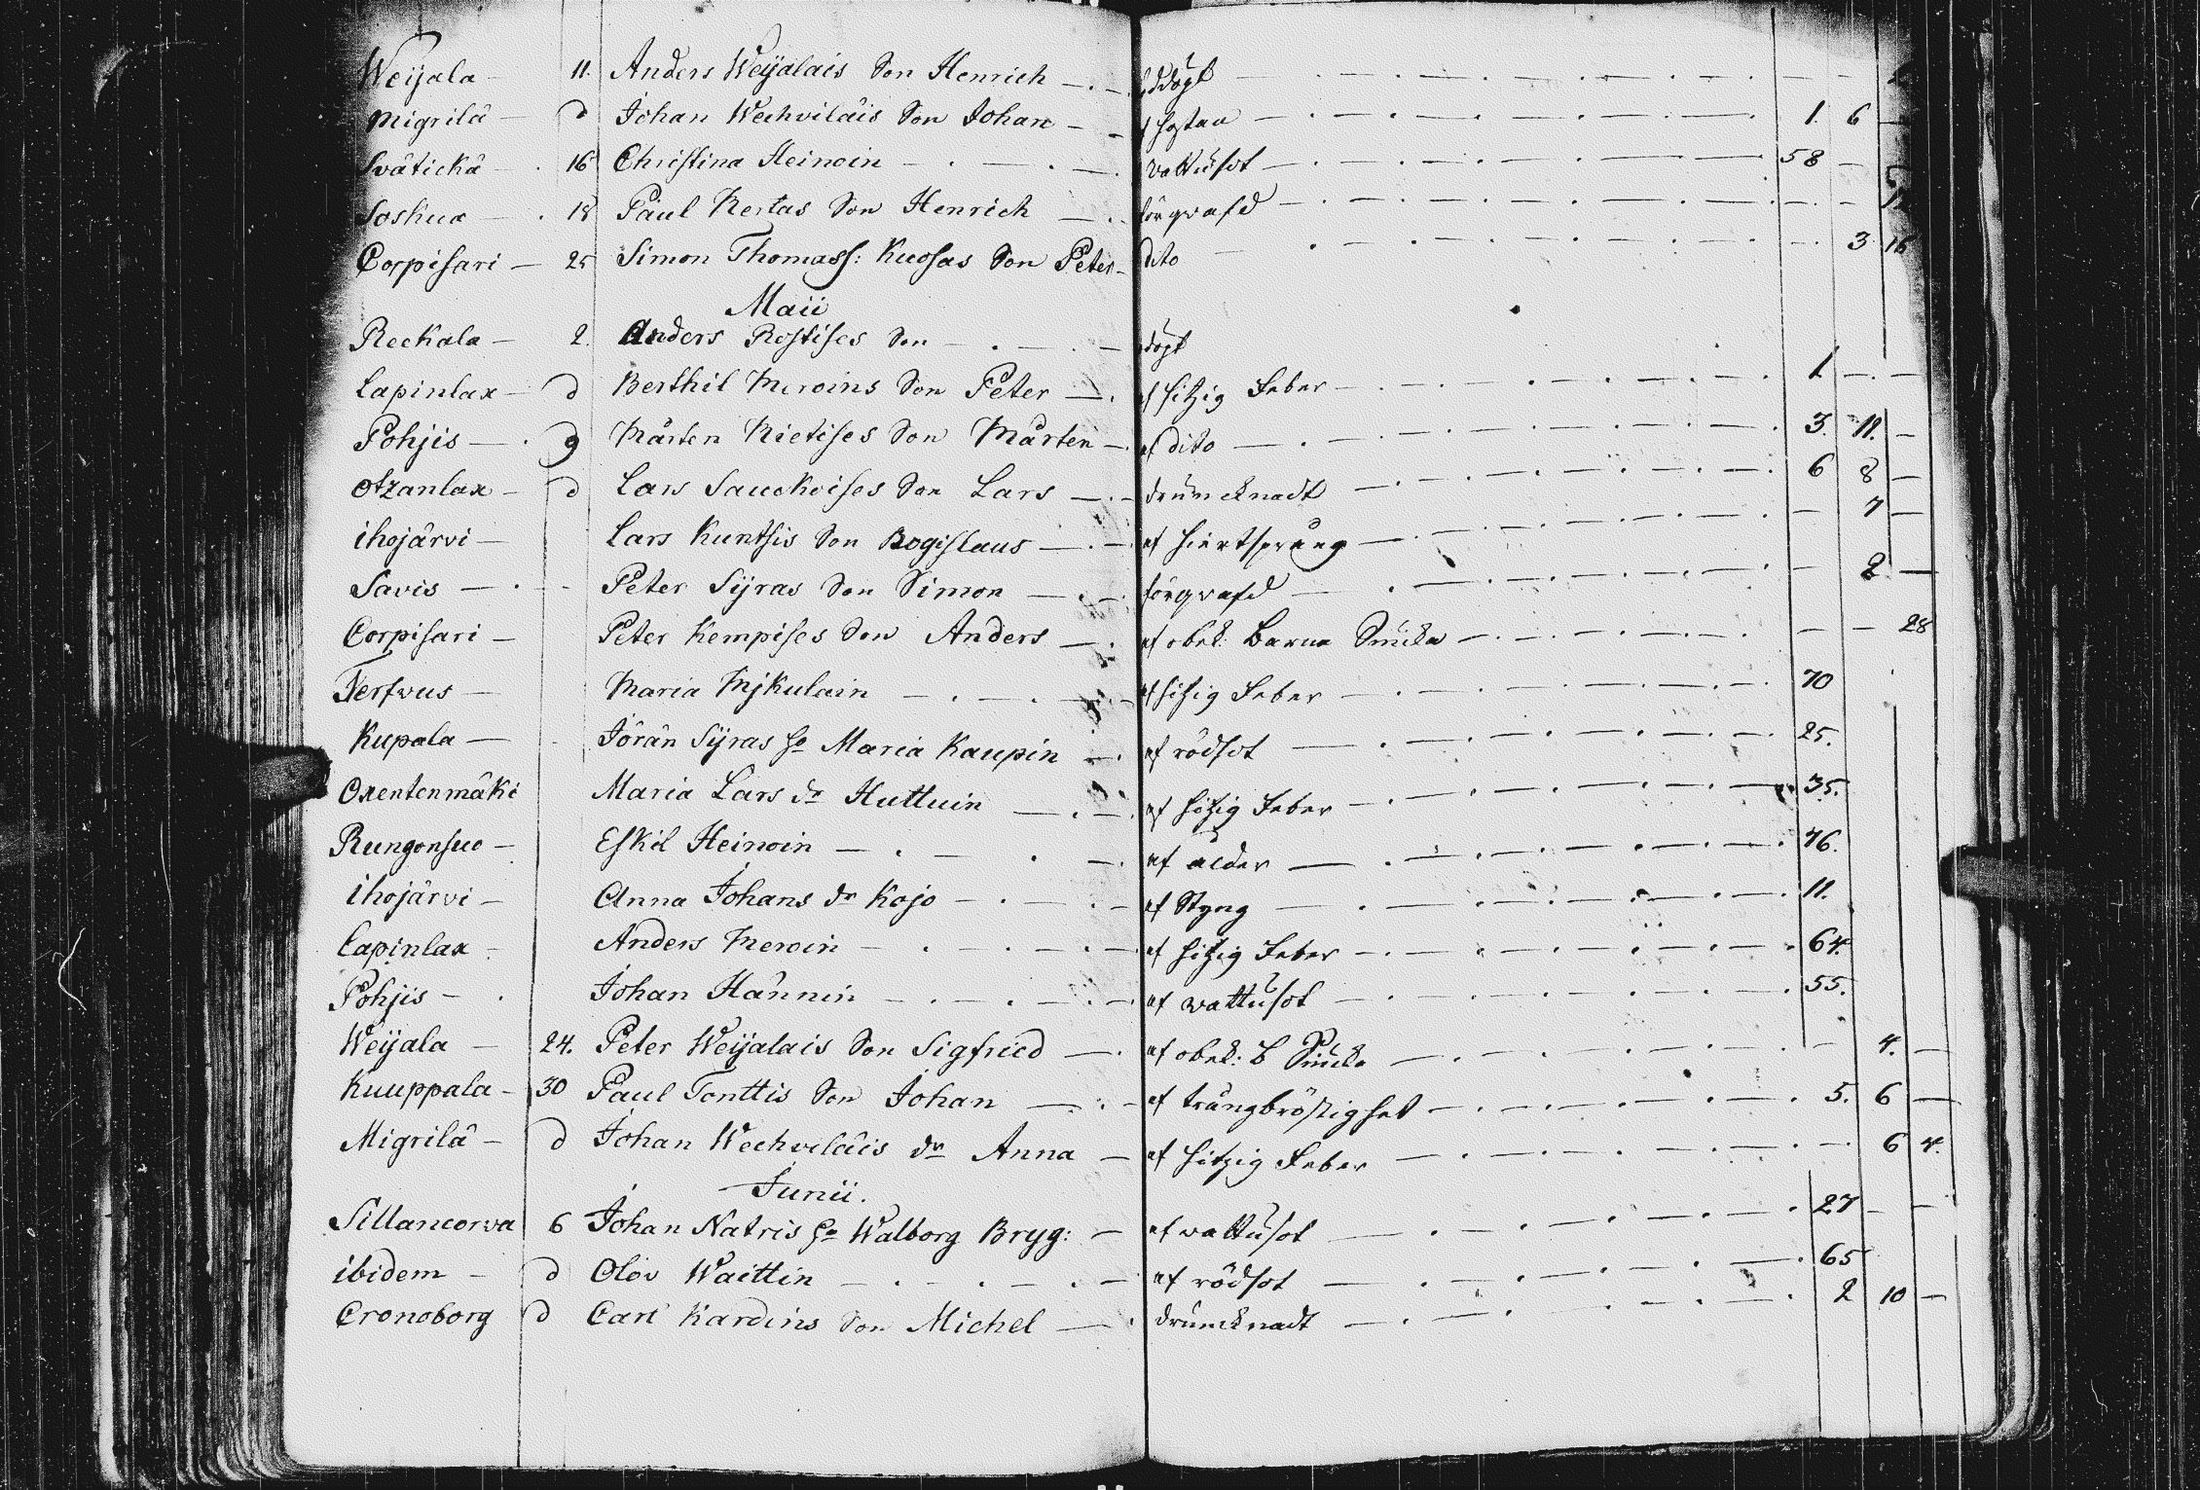 Weijala - 11. Anders Weijalais Son Henrich - . - ddögt - . - . -
Migrilä - d Johan Wechviläis Son Johan - - f hostan - . - . - 1. 6 -
Svätickä - . 16 Christina Heinoin - . - . - wattusot - . - . - 58 -
Soshua - . 18 Paul Kertas Son Henrich - . - förqwafd - . - . -
Corpisari - 25 Simon Thomass: Kuosas Son Peter - dito - . - . - 3 16
Maii
Reekala - 2. Anders Rostises Son - . - . - dögt
Lapinlax - d Berthil Meroins Son Peter - . af hitzig Feber - . - . - 1 - . -
Pohjis - . 9 Mårten Mietises Son Mårten - . af dito - . - . - 3. 11. -
Otzanlax - d Lars Sauckoises Son Lars - . - druncknadt - . - . - 6 8 -
ihojärvi - Lars Kuntsis Son Bogislaus - . - af hiertsprång - . - . - 7 -
Savis - . - Peter Sijras Son Simon - . - förqwafd - . - . - 2 -
Corpisari - Peter Kempises Son Anders - . af obek: Barna Siucka - . - . - - - 28
Terfwus - Maria Mjkulain - . - . - af hitzig Feber - . - . - 70
Kupala - Jöran Sijras ho Maria Kaupin - . af rödsot - . - . - 25.
Oxentenmäki Maria Lars dr Huttuin - . - af hitzig Feber - . - . - 35.
Rungonsuo - Eskil Heinoin - . - . - af ålder - . - . - 76.
ihojärvi - Anna Johans dr Kojo - . - . - af Styng - . - . - 11.
Lapinlax - Anders Meroin - . - . - af hitzig Feber - . - . - 64.
Pohjis - . Johan Hännin - . - . - af wattusot - . - . - 55.
Weijala - 24. Peter Weijalais Son Sigfried - . af obek: B Siucka - . - . - 4. -
Kuuppala - 30 Paul Tonttis Son Johan - . - af trångbröstighet - . - . - 5. 6 -
Migrilä - d Johan Wechviläis dr Anna - af hitzig Feber - . - . - 6 4.
Junii.
Sillancorva 6 Johan Natris ho Walborg Bryg: - af wattusot - . - . - 27 - -
ibidem - d Olov Waittin - . - . - af rödsot - . - . - 65
Cronoborg d Carl Kardins Son Michel - . druncknadt - . - . - 2 10 -